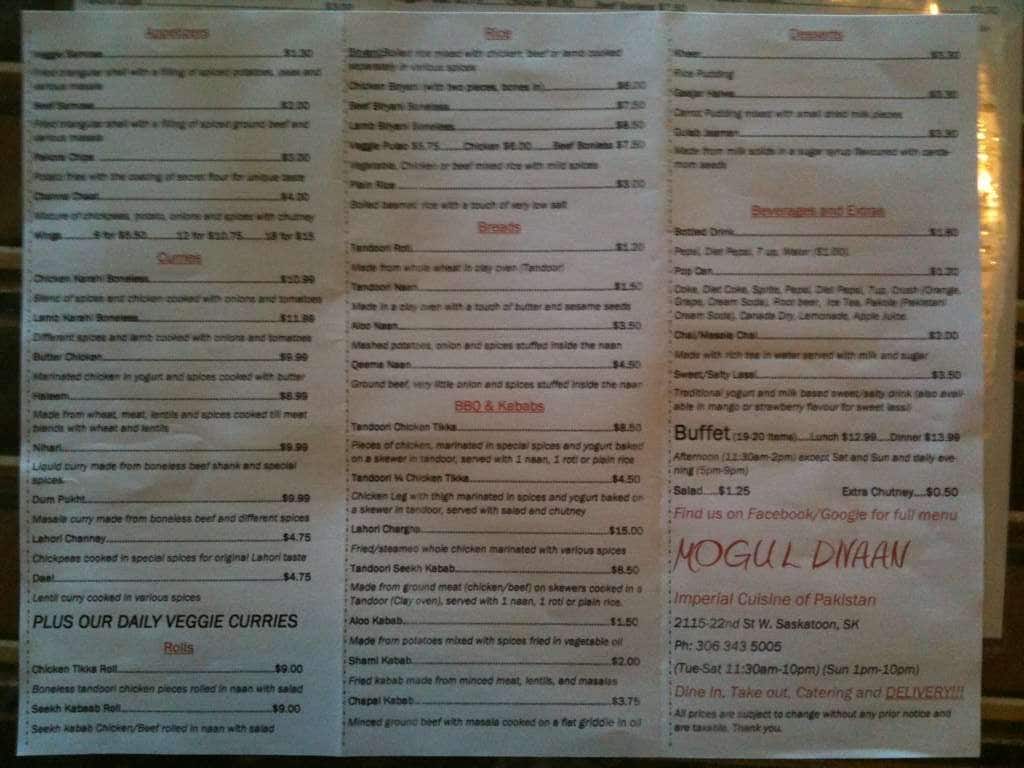 Appetizers
Veggie Samosa $1.30
Fried triangular shell with a filling of spiced potatoes, peas and
various masala
Beef Samosa $2.00
Fried triangular shell with a filling of spiced ground beef and
various masala
Pakora Chips
Potato fries with the coating of secret flour for unique taste
Channa Chaat $4.00
Mixture of chickpeas, potato, onions and spices with chutney
Wings 6 for $5.50 12 for $10.75 18 for $15
Curries
Chicken Karahi Boneless $10.99
Blend of spices and chicken cooked with onions and tomatoes
Lamb Karahi Boneless $11.99
Different spices and lamb cooked with onions and tomatoes
Butter Chicken $9.99
Marinated chicken in yogurt and spices cooked with butter
Haleem $8.99
Made from wheat, meat, lentils and spices cooked till meat
blends with wheat and lentils
Nihari $9.99
Liquid curry made from boneless beef shank and special
spices
Dum Pukht $9.99
Masala curry made from boneless beef and different spices
Lahori Channey $4.75
Chickpeas cooked in special spices for original Lahori taste
Daal $4.75
Lentil curry cooked in various spices
PLUS OUR DAILY VEGGIE CURRIES
Rolls
Chicken Tikka Roll $9.00
Boneless tandoori chicken pieces rolled in naan with salad
Seekh Kabaab Roll $9.00
Seekh kabab Chicken/Beef rolled in naan with salad
Rice
Biryani:Boiled rice mixed with chicken, beef or lamb cooked
separately in various spices
Chicken Biryani (with two pieces, bones in) $6.00
Beef Biryani Boneless $7.50
Lamb Biryani Boneless $8.50
Veggie Pulao $5.75 Chicken $6.00 Beef Boneless $7.50
Vegetable, Chicken or beef mixed rice with mild spices
Plain Rice $3.00
Boiled basmati rice with a touch of very low salt
Breads
Tandoori Roti $1.20
Made from whole wheat in clay oven (Tandoor)
Tandoori Naan $1.50
Made in a clay oven with a touch of butter and sesame seeds
Aloo Naan $3.50
Mashed potatoes, onion and spices stuffed inside the naan
Qeema Naan $4.50
Ground beef, very little onion and spices stuffed inside the naan
BBQ & Kababs
Tandoori Chicken Tikka $8.50
Pieces of chicken, marinated in special spices and yogurt baked
on a skewer in tandoor, served with 1 naan, 1 roti or plain rice
Tandoori ¼ Chicken Tikka $4.50
Chicken Leg with thigh marinated in spices and yogurt baked on
a skewer in tandoor, served with salad and chutney
Lahori Chargha $15.00
Fried/steamed whole chicken marinated with various spices
Tandoori Seekh Kabab $8.50
Made from ground meat (chicken/beef) on skewers cooked in a
Tandoor (Clay oven), served with 1 naan, 1 roti or plain rice.
Aloo Kabab $1.50
Made from potatoes mixed with spices fried in vegetable oil
Shami Kabab $2.00
Fried kabab made from minced meat, lentils, and masalas
Chapal Kabab $3.75
Minced ground beef with masala cooked on a flat griddle in oil
Desserts
Kheer $3.30
Rice Pudding
Gaajar Halwa $3.30
Carrot Pudding mixed with small dried milk pieces
Gulab Jaaman $3.30
Made from milk solids in a sugar syrup flavoured with carda-
mom seeds
Beverages and Extras
Bottled Drink
Pepsi, Diet Pepsi, 7 up, Water ($1.00)
Pop Can $1.20
Coke, Diet Coke, Sprite, Pepsi, Diet Pepsi, 7up, Crush (Orange,
Grape, Cream Soda), Root beer, Ice Tea, Pakola (Pakistani
Cream Soda), Canada Dry, Lemonade, Apple Juice
Chai/Masala Chai $2.00
Made with rich tea in water served with milk and sugar
Sweet/Salty Lassi $3.50
Traditional yogurt and milk based sweet/salty drink (also avail-
able in mango or strawberry flavour for sweet lassi)
Buffet (19-20 items) Lunch $12.99 Dinner $13.99
Afternoon (11:30am-2pm) except Sat and Sun and daily eve-
ning (5pm-9pm)
Salad $1.25 Extra Chutney $0.50
Find us on Facebook/Google for full menu
MOGUL DIVAAN
Imperial Cuisine of Pakistan
2115-22nd St W. Saskatoon, SK
Ph: 306 343 5005
(Tue-Sat 11:30am-10pm) (Sun 1pm-10pm)
Dine In, Take out, Catering and DELIVERY!!!
All prices are subject to change without any prior notice and
are taxable. Thank you.